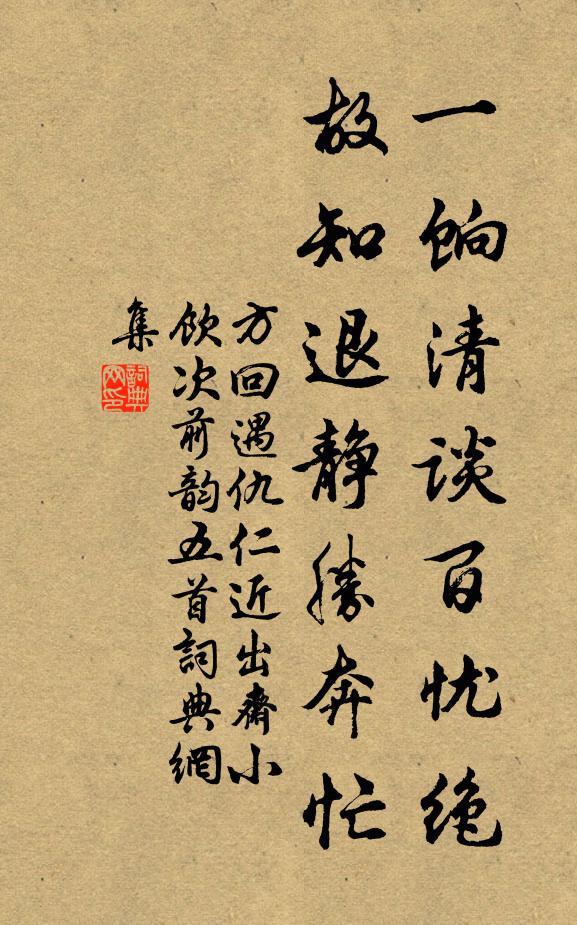 一饷清谈百忧绝
故知退静胜奔忙
方回遇仇仁近出斋小
饮次前韵五首詞典網
集
詞典
网印